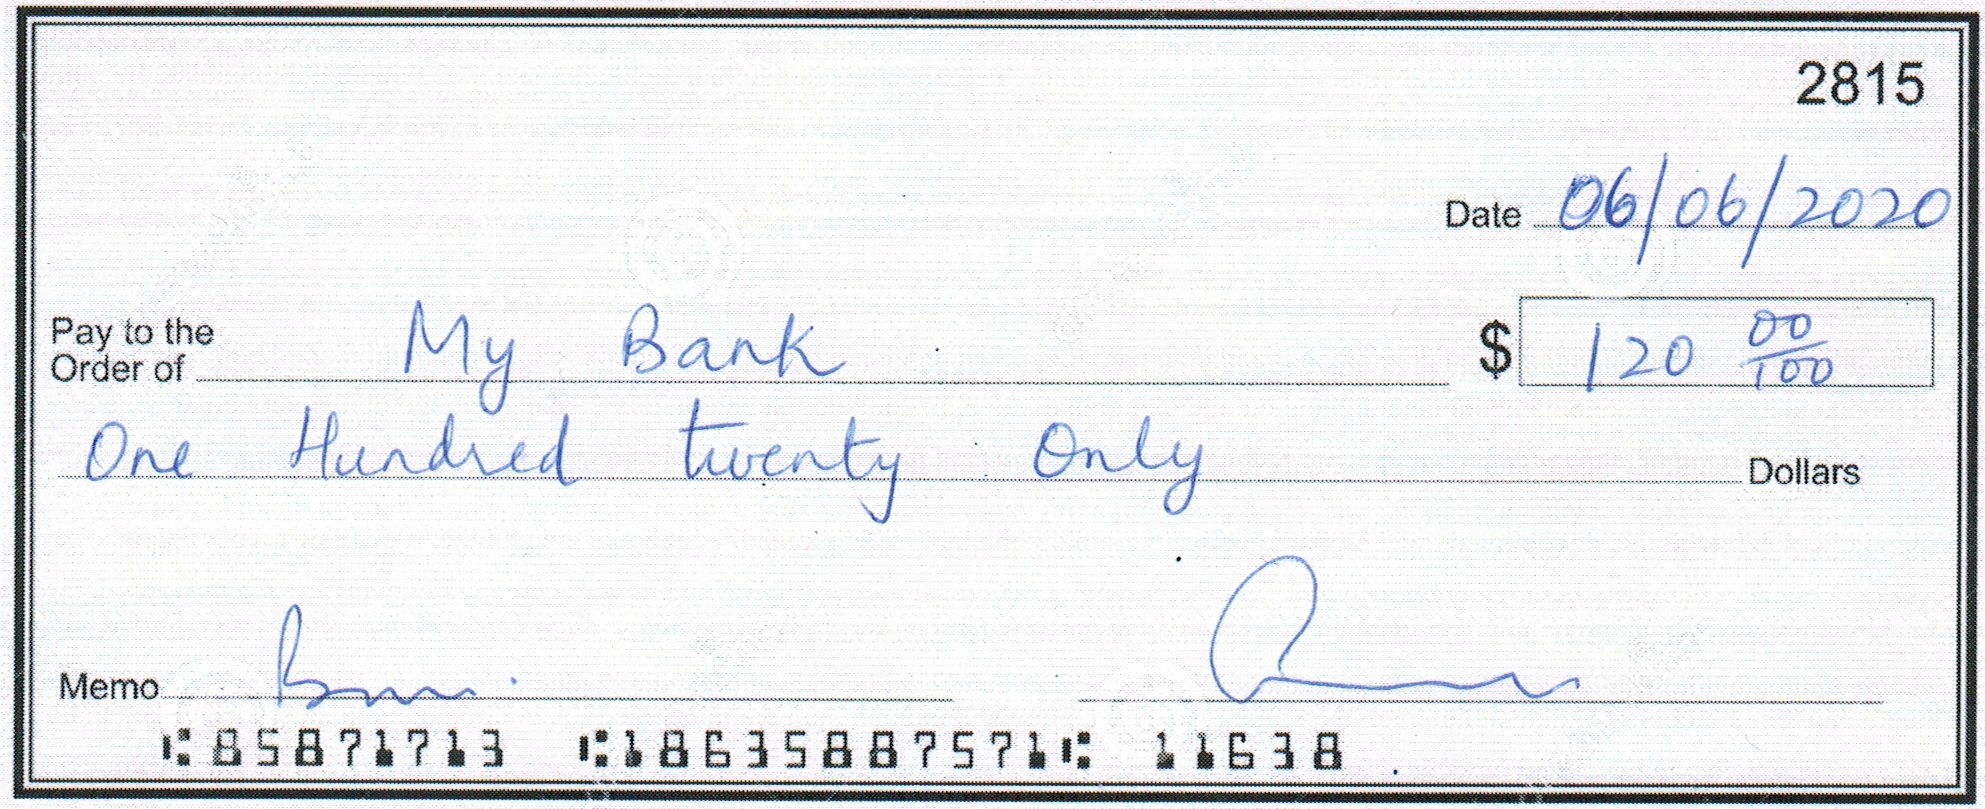 2815
Date 06/06/2020
Pay to the
Order of My Bank $ 120 00/100
One Hundred twenty Only Dollars
Memo
⑆85871713 ⑆18635887571⑆ 11638